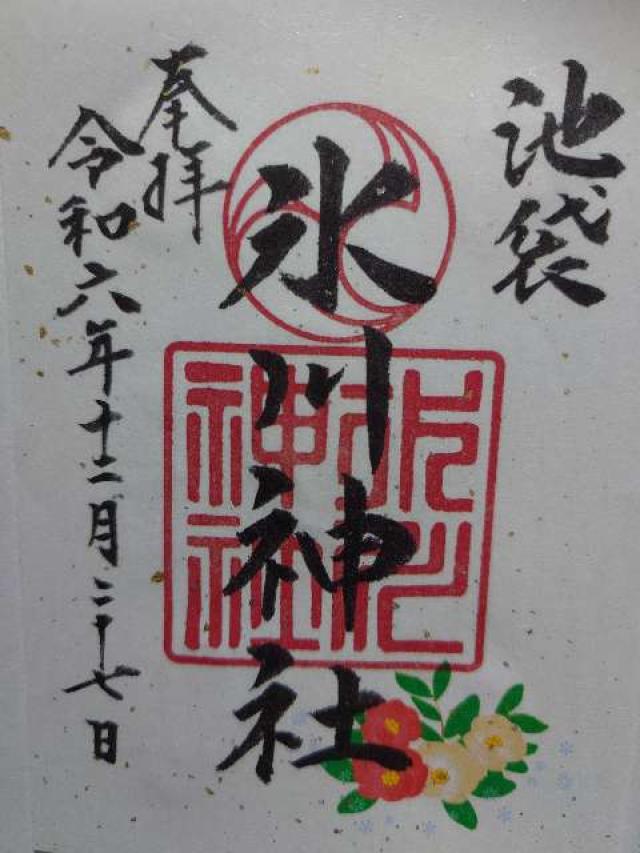 池袋
氷川神社
奉拝
令和六年十二月二十七日
氷川神社